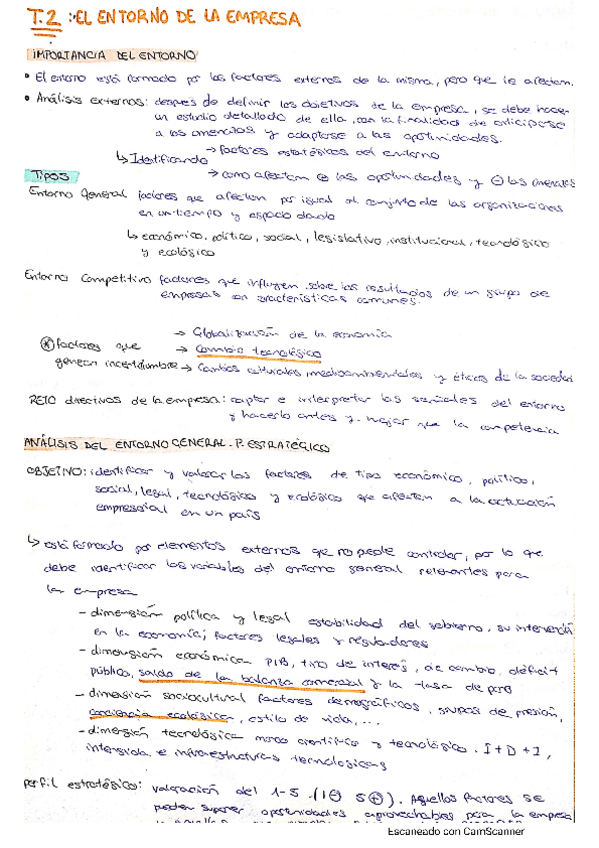 T.2 : EL ENTORNO DE LA EMPRESA
IMPORTANCIA DEL ENTORNO
• El entorno está formado por los factores externos de la misma, pero que le afectan.
• Análisis externos: después de definir los objetivos de la empresa, se debe hacer
un estudio detallado de ella, con la finalidad de anticiparse
a las amenazas y adaptarse a las oportunidades.
↳ Identificando → factores estratégicos del entorno
→ como afectan ⊕ las oportunidades y ⊖ las amenazas
TIPOS
Entorno General factores que afectan por igual al conjunto de las organizaciones
en un tiempo y espacio dado
↳ económico, político, social, legislativo, institucional, tecnológico
y ecológico
Entorno Competitivo factores que influyen sobre los resultados de un grupo de
empresas con características comunes.
→ Globalización de la economía
⊗ factores que → Cambio tecnológico
generan incertidumbre → Cambios culturales, medioambientales y éticos de la sociedad
RETO directivos de la empresa: captar e interpretar las señales del entorno
y hacerlo antes y mejor que la competencia
ANÁLISIS DEL ENTORNO GENERAL. P. ESTRATÉGICO
OBJETIVO: identificar y valorar los factores de tipo económico, político,
social, legal, tecnológico y ecológico que afectan a la actuación
empresarial en un país
↳ está formado por elementos externos que no puede controlar, por lo que
debe identificar las variables del entorno general relevantes para
la empresa
- dimensión política y legal estabilidad del gobierno, su intervención
en la economía, factores legales y reguladores
- dimensión económica PIB, tipo de interés, de cambio, déficit
público, saldo de la balanza comercial y la tasa de paro
- dimensión sociocultural factores demográficos, grupos de presión,
conciencia ecológica, estilo de vida, ...
- dimensión tecnológica marco científico y tecnológico. I+D+I,
e infraestructuras tecnológicas
perfil estratégico: valoración del 1-5. (1⊖ 5⊕). Aquellos factores se
pueden suponer oportunidades aprovechables para la empresa
Escaneado con CamScanner